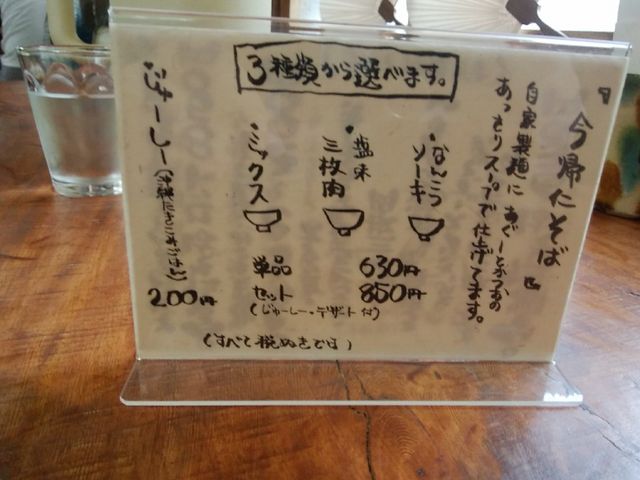 『今帰仁そば』
自家製麺に あぐーとかつおの
あっさりスープで 仕上げてます。
3種類から選べます。
なんこつ
ソーキ
塩味
三枚肉
ミックス
単品 630円
セット 850円
(じゅーしー・デザート付)
じゅーしー(沖縄たきこみごはん)
200円
(すべて税ぬきです)